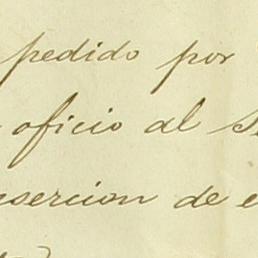 pedido por
oficio al
sercion de